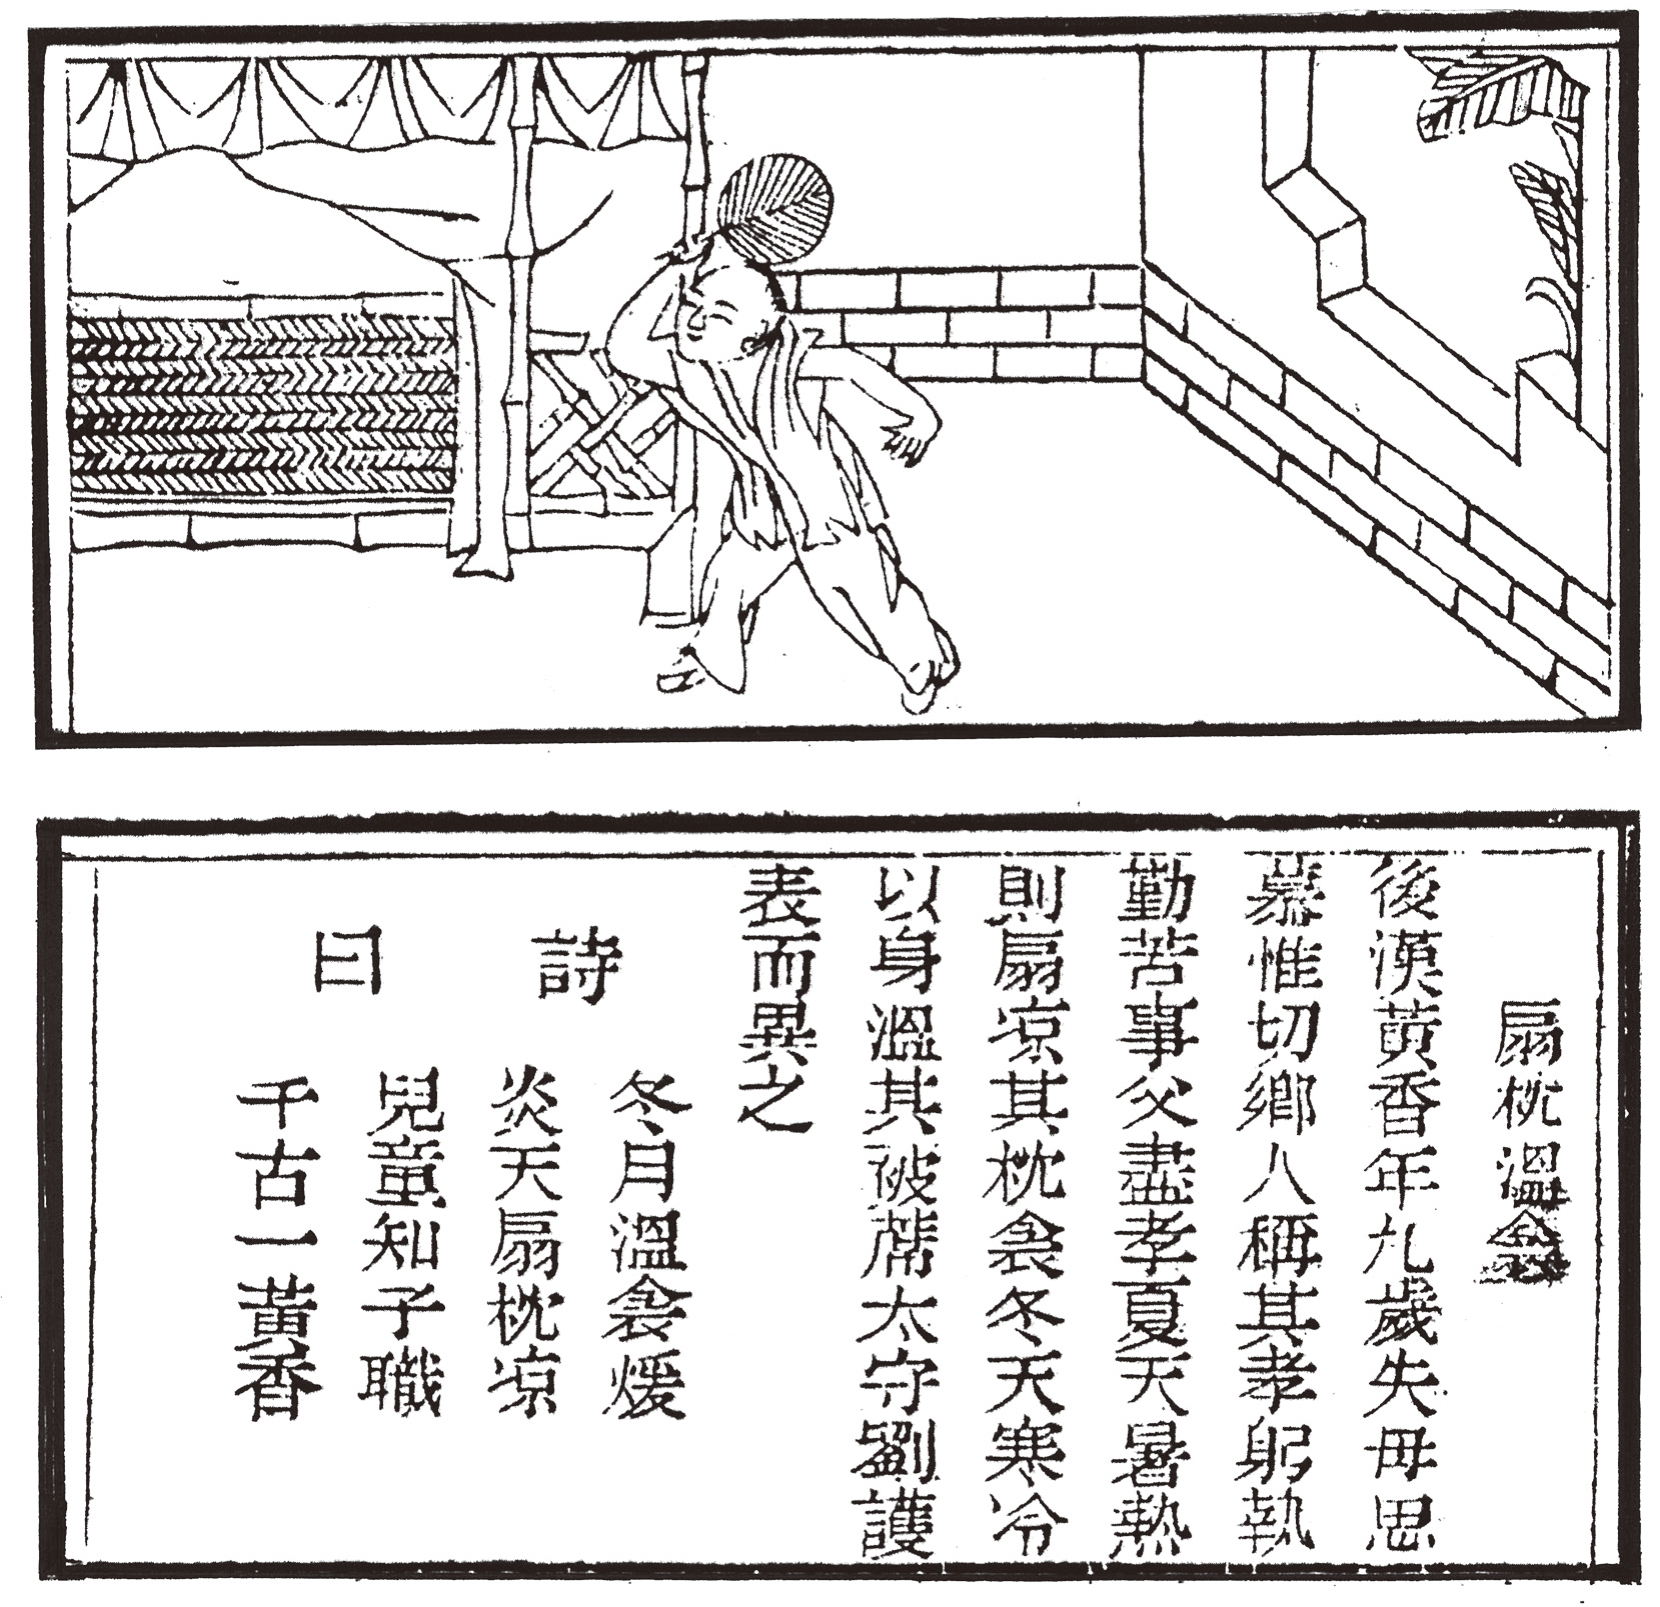 扇枕溫衾
後漢黃香年九歲失母思
慕惟切鄉人稱其孝躬執
勤苦事父盡孝夏天暑熱
則扇凉其枕衾冬天寒冷
以身溫其被蓆太守劉護
表而異之
詩
曰
冬月溫衾煖
炎天扇枕凉
兒童知子職
千古一黃香